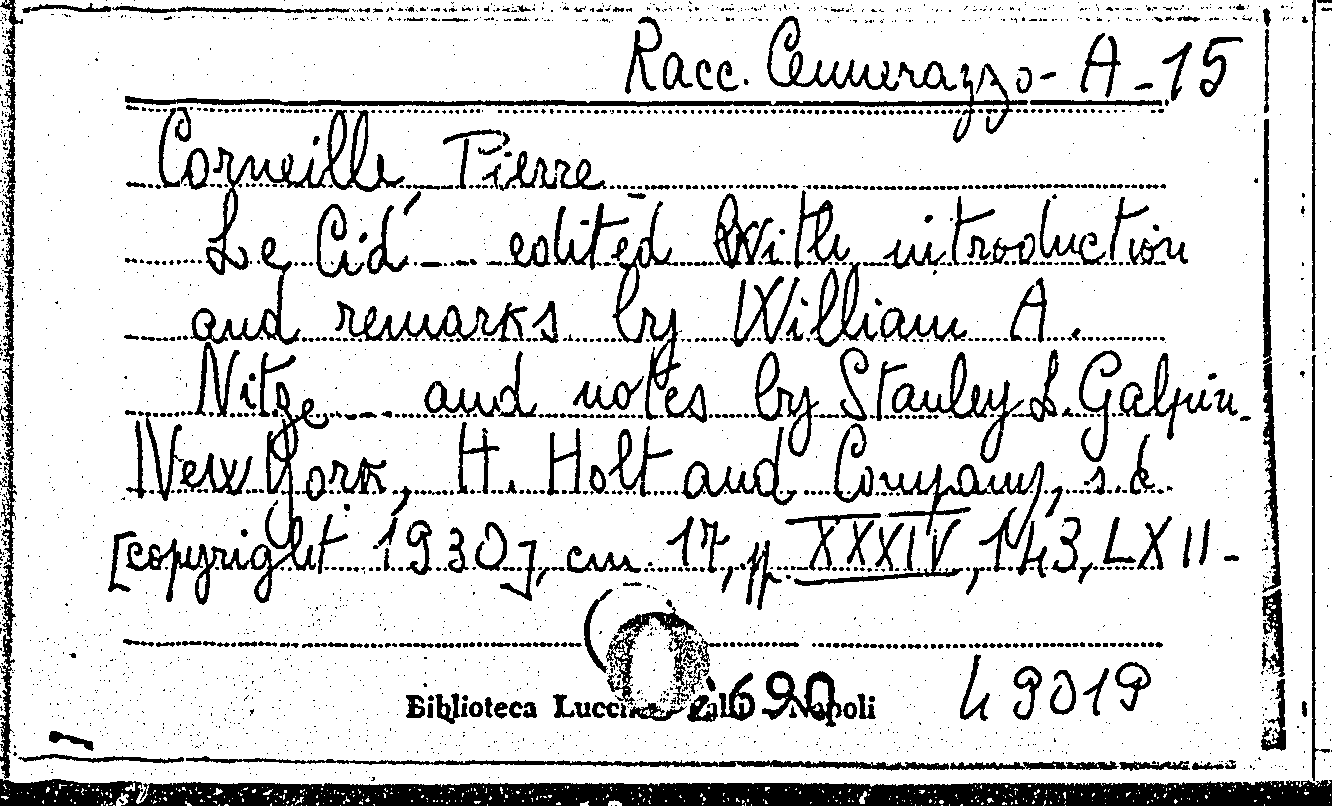 Racc. Cennerazzo - A - 15
Corneille, Pierre
Le Cid --- edited with introduction
and remarks by William A.
Nitze --- and notes by Stanley L. Galpin.
New York, H. Holt and Company, s.d.
[copyright 1930], cm. 17, pp. XXXIV, 143, LXII -
690 49019
Biblioteca Napoli